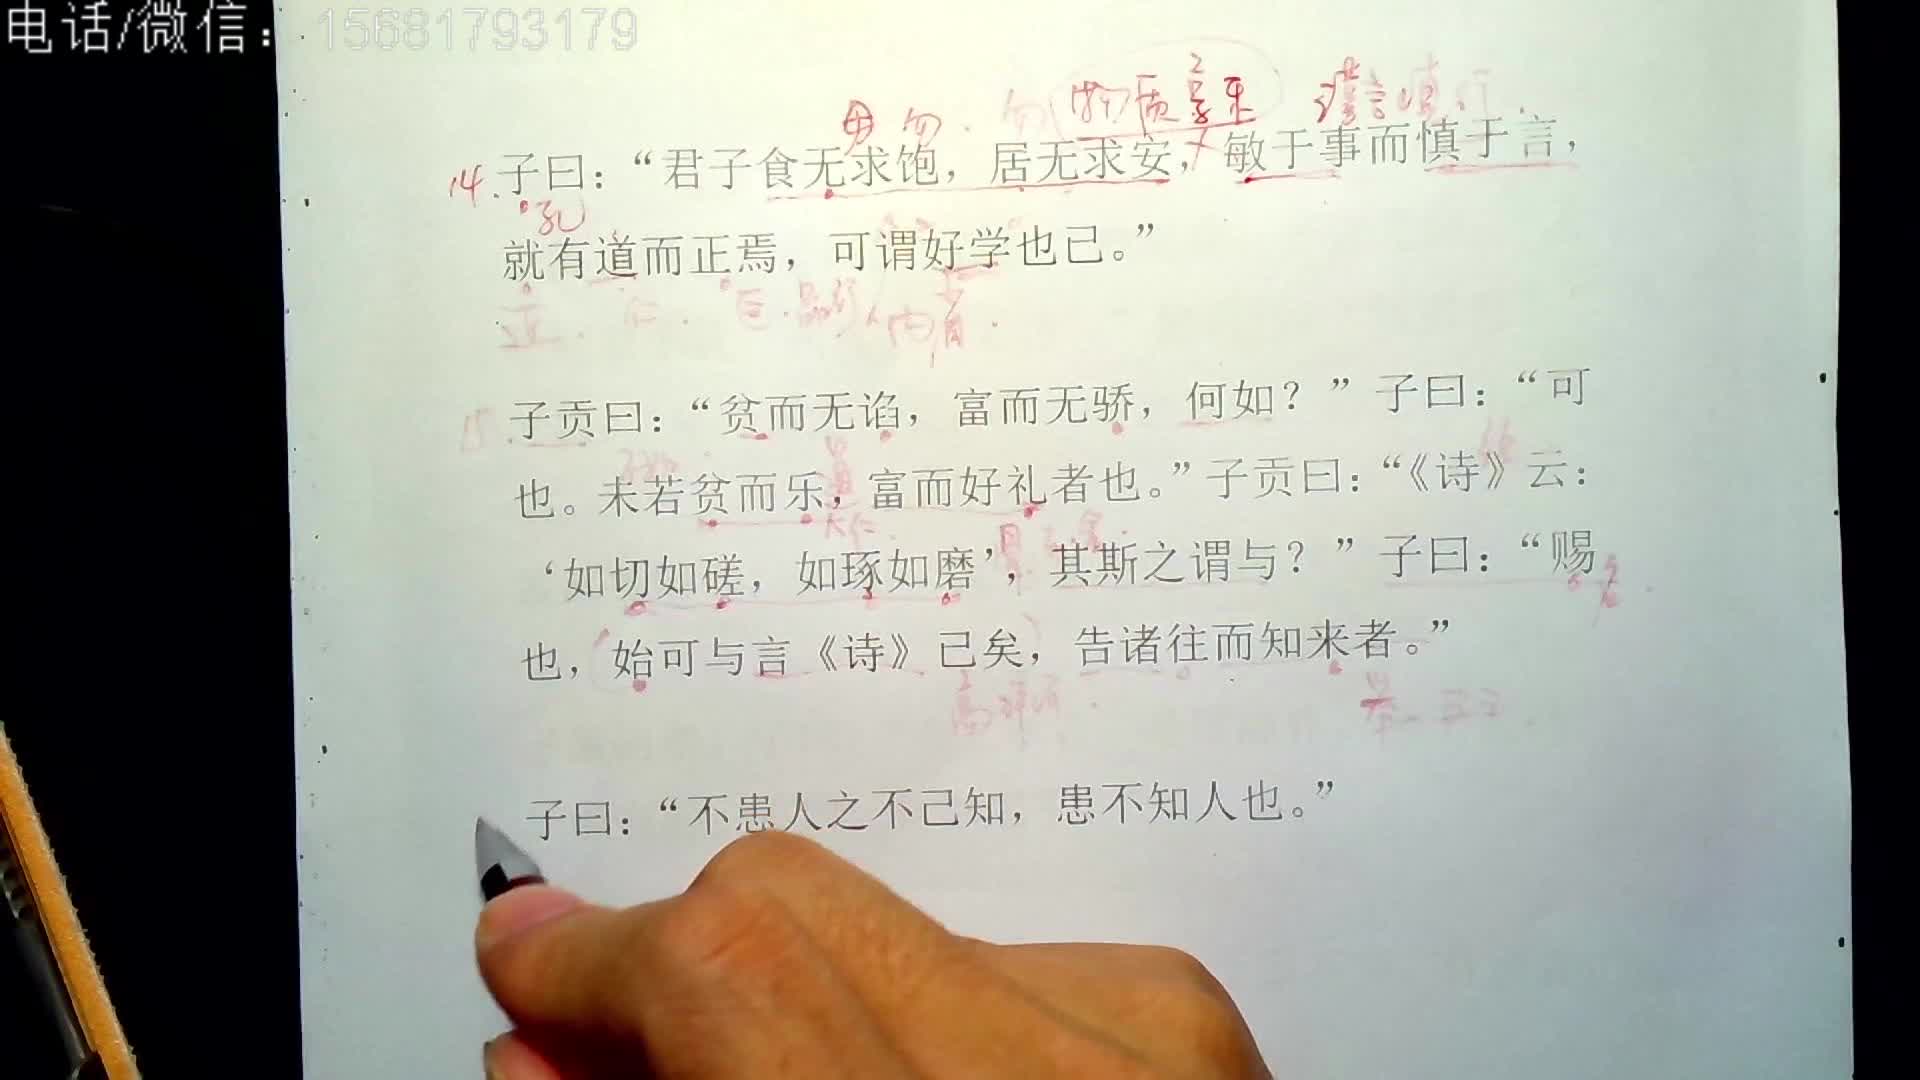 电话/微信：15681793179
毋 勿 . 勿 物质享乐 谨言慎行 .
14. 子曰：“君子食无求饱，居无求安，敏于事而慎于言，
孔
就有道而正焉，可谓好学也已。”
正 . 仁 . 匡 . 内省 .
15. 子贡曰：“贫而无谄，富而无骄，何如？”子曰：“可
也。未若贫而乐，富而好礼者也。”子贡曰：“《诗》云：
‘如切如磋，如琢如磨’，其斯之谓与？”子曰：“赐
也，始可与言《诗》已矣，告诸往而知来者。”
高
子曰：“不患人之不己知，患不知人也。”